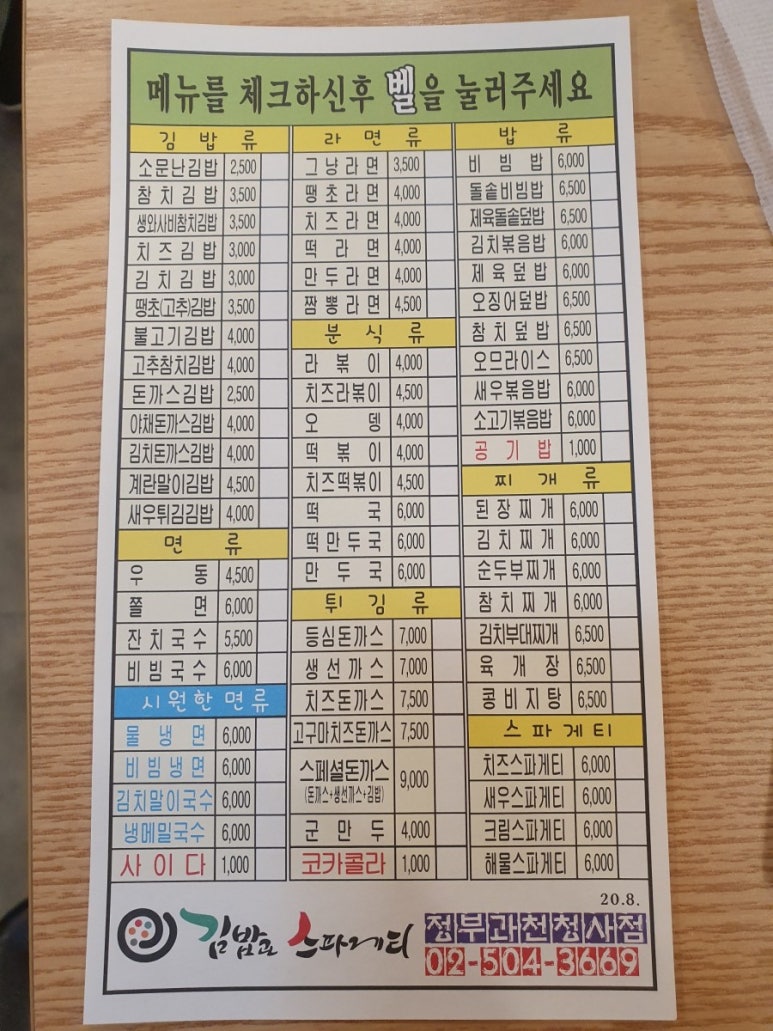 메뉴를 체크하신후 벨을 눌러주세요
김밥류
소문난김밥 2,500
참치김밥 3,500
생와사비참치김밥 3,500
치즈김밥 3,000
김치김밥 3,000
땡초(고추)김밥 3,500
불고기김밥 4,000
고추참치김밥 4,000
돈까스김밥 2,500
야채돈까스김밥 4,000
김치돈까스김밥 4,000
계란말이김밥 4,500
새우튀김김밥 4,000
면류
우동 4,500
쫄면 6,000
잔치국수 5,500
비빔국수 6,000
시원한면류
물냉면 6,000
비빔냉면 6,000
김치말이국수 6,000
냉메밀국수 6,000
사이다 1,000
라면류
그냥라면 3,500
땡초라면 4,000
치즈라면 4,000
떡라면 4,000
만두라면 4,000
짬뽕라면 4,500
분식류
라볶이 4,000
치즈라볶이 4,500
오뎅 4,000
떡볶이 4,000
치즈떡볶이 4,500
떡국 6,000
떡만두국 6,000
만두국 6,000
튀김류
등심돈까스 7,000
생선까스 7,000
치즈돈까스 7,500
고구마치즈돈까스 7,500
스페셜돈까스 9,000
(돈까스+생선까스+김밥)
군만두 4,000
코카콜라 1,000
밥류
비빔밥 6,000
돌솥비빔밥 6,500
제육돌솥덮밥 6,500
김치볶음밥 6,000
제육덮밥 6,000
오징어덮밥 6,500
참치덮밥 6,500
오므라이스 6,500
새우볶음밥 6,000
소고기볶음밥 6,000
공기밥 1,000
찌개류
된장찌개 6,000
김치찌개 6,000
순두부찌개 6,000
참치찌개 6,000
김치부대찌개 6,500
육개장 6,500
콩비지탕 6,500
스파게티
치즈스파게티 6,000
새우스파게티 6,000
크림스파게티 6,000
해물스파게티 6,000
20.8.
김밥효 스파게티 정부과천청사점
02-504-3669